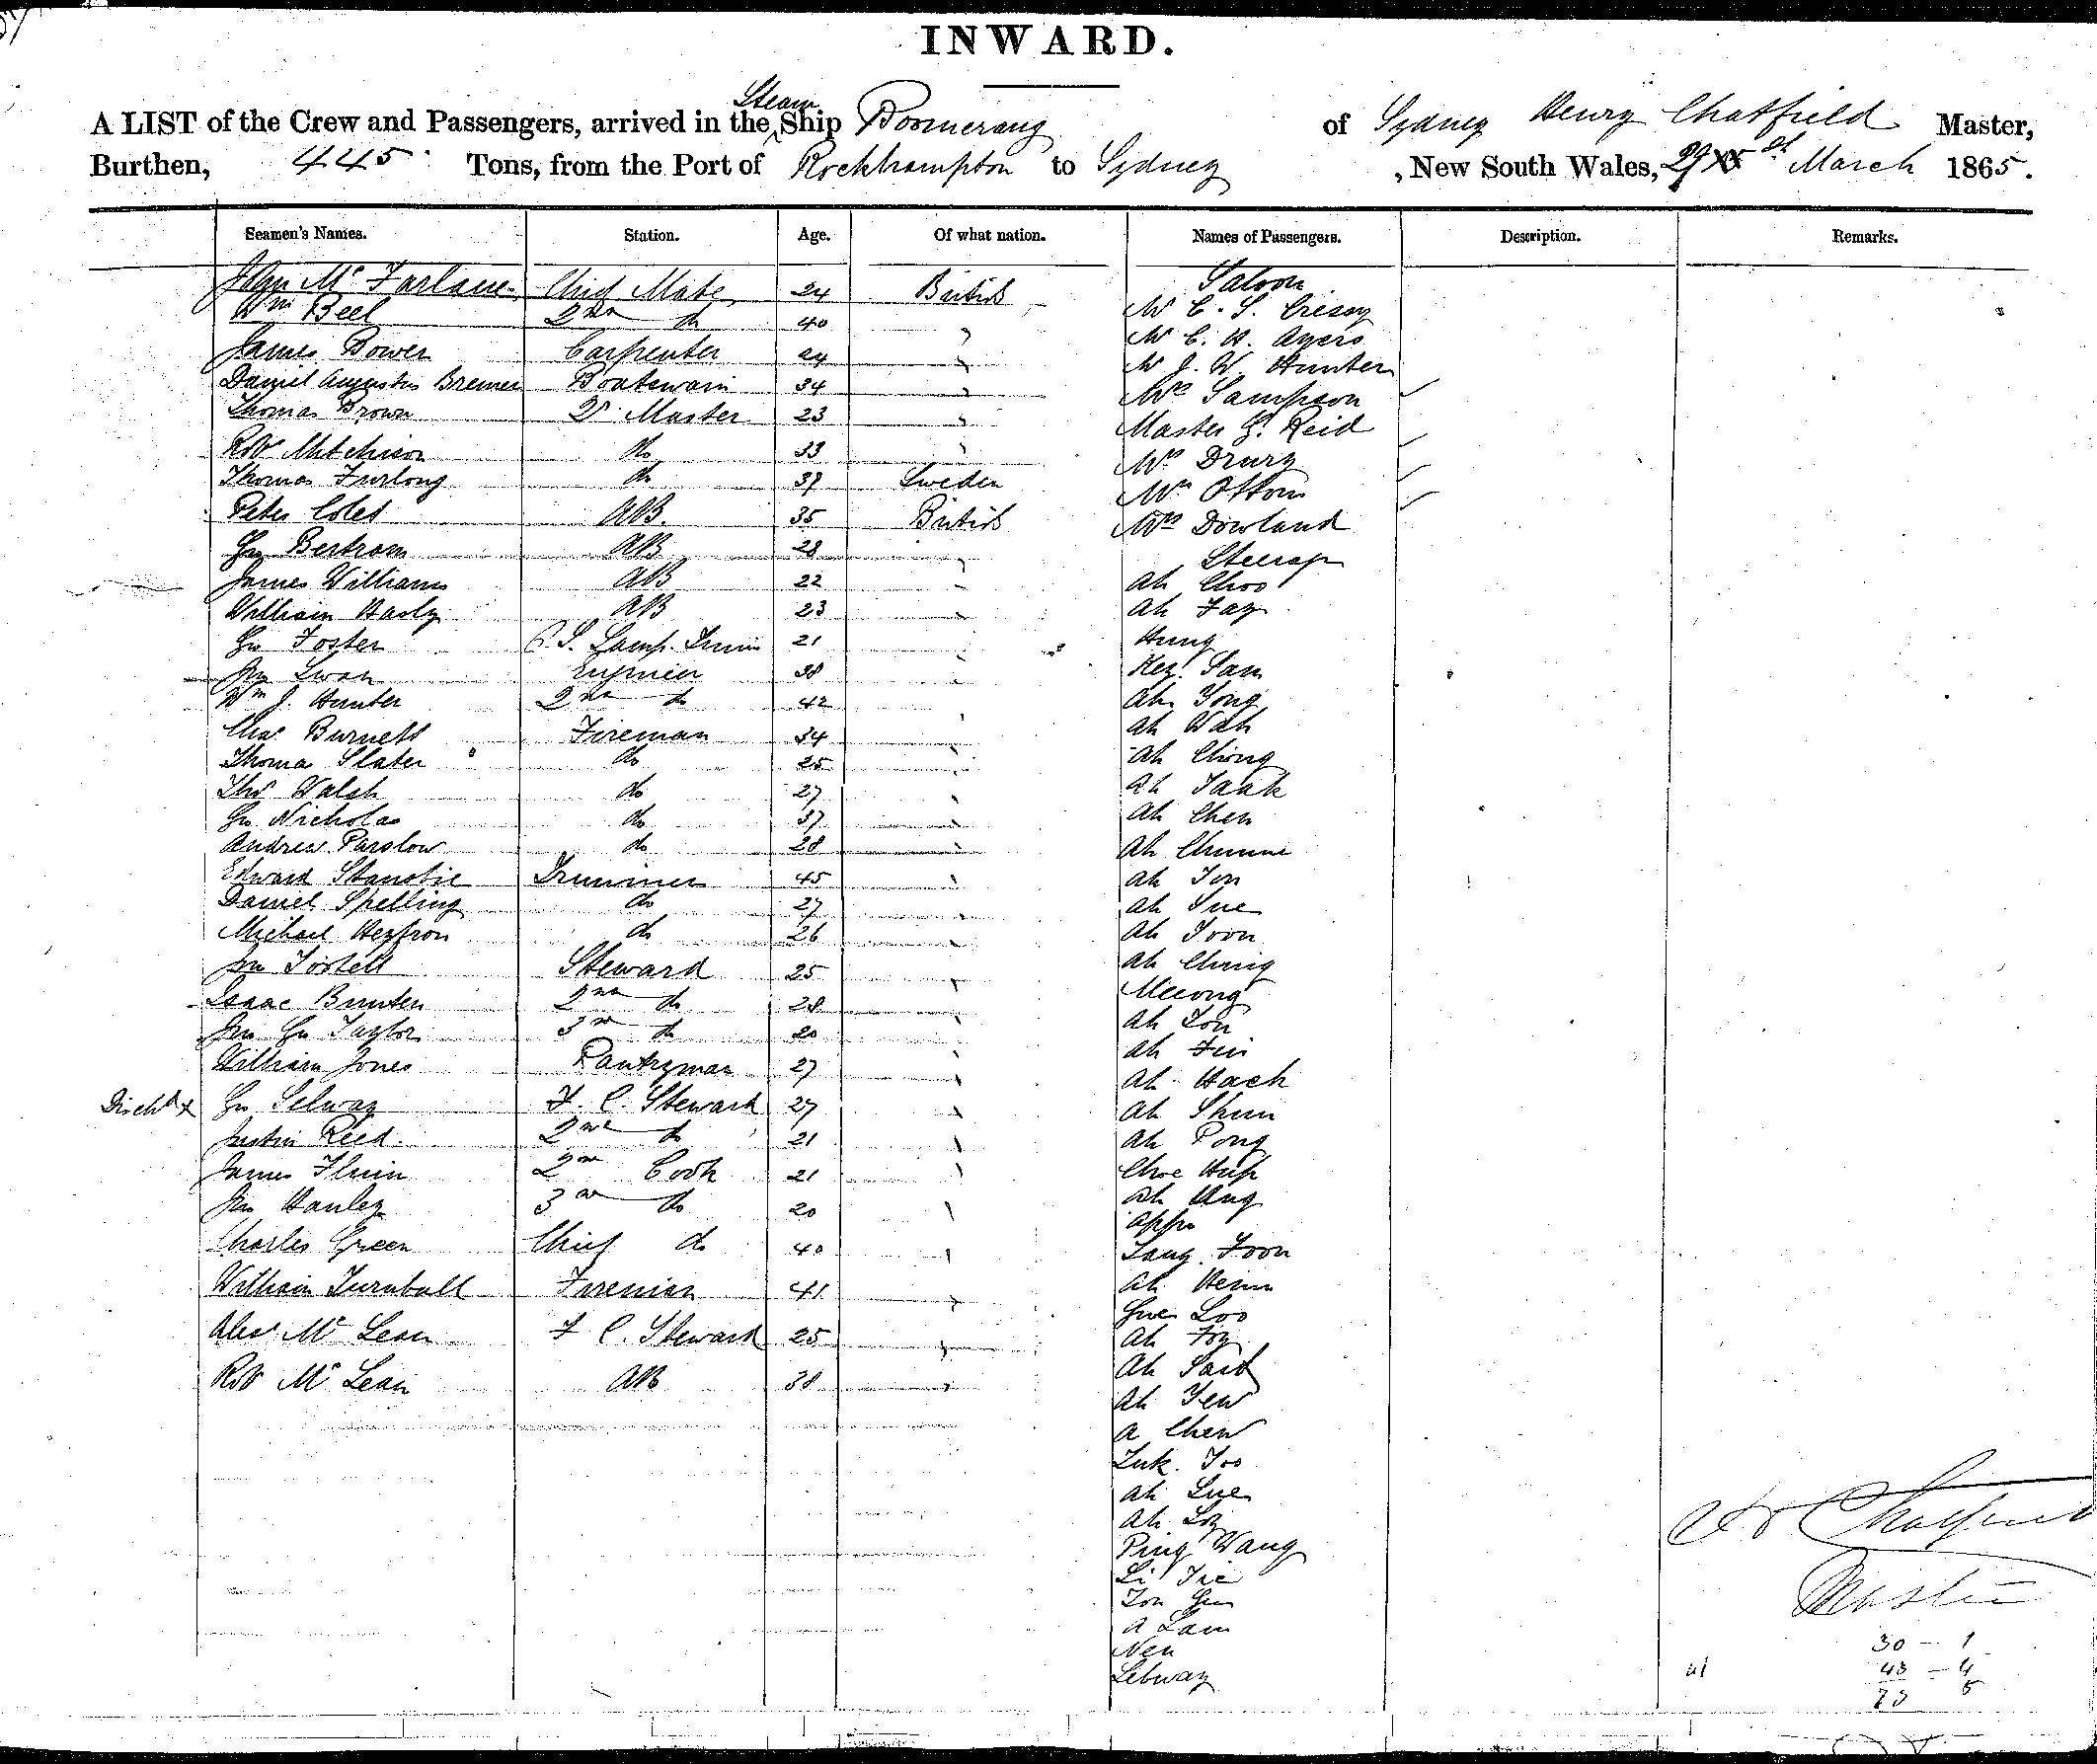 INWARD.
A LIST of the Crew and Passengers, arrived in the Steam Ship Boomerang of Sydney Henry Chatfield Master,
Burthen, 445 Tons, from the Port of Rockhampton to Sydney , New South Wales, 29 March 1865.
Seamen's Names. Station. Age. Of what nation. Names of Passengers. Description. Remarks.
John McFarlane Chief Mate 24 British Saloon
Wm Bell 2nd do 40 Mr C. S. Cresey
James Bower Carpenter 24 Mr C. H. Ayers
Daniel Augustus Bremer Boatswain 34 Mr J. W. Hunter
Thomas Brown Qr Master 23 Mrs Sampson
Robt Mitchison do 33 Master G. Reid
Thomas Furlong do 37 Sweden Mrs Drury
Peter Coles AB. 35 British Mrs Dowland
Bertrom AB 28 Steerage
James Williams AB 22 Ah Choo
William Hasty AB 23 Ah Fay
Geo Foster Lamp Trimr 21 Hung
Jno Swan Engineer 38 Sam
Wm J. Hunter 2nd do 42 Ah Yong
Chas Burnett Fireman 34 Ah Wah
Thomas Slater do 25 Ah Ching
Thos Walsh do 27 Ah Tank
Geo Nicholas do 37 Ah Chen
Andrew Parslow do 28 Ah Chumm
Edward Trimmer 45 Ah Jon
Daniel Spelling do 27 Ah Sue
Michael Heyfron do 26 Ah Toon
Jno Tostell Steward 25 Ah Ching
Isaac Bunten 2nd do 28
Jno Geo Taylor 3rd do 20 Ah Lon
William Jones Pantryman 27 Ah Fin
Disch'd x Geo Selway F. C. Steward 27 Ah Hack
Justin Reed 2nd do 21 Ah Shun
James 2nd Cook 21 Ah Pong
Jno Hanley 3rd do 20 Choe Hup
Charles Green Chief do 40 Ah Ung
William Turnbull Fireman 41 Appo
Alexr McLean F C. Steward 25 Tang Foon
Robt McLean AB 38 Ah Henn
Gue Loo
Ah Foy
Ah Sait
Ah Yew
A Chew
Luk Too
Ah Lue
Ah Loy
Ping Wang
Li Tie
Ton Gun
A Lam
Nen
Lebway
H Chatfield
Master
30 - 1
43 - 4
73 5